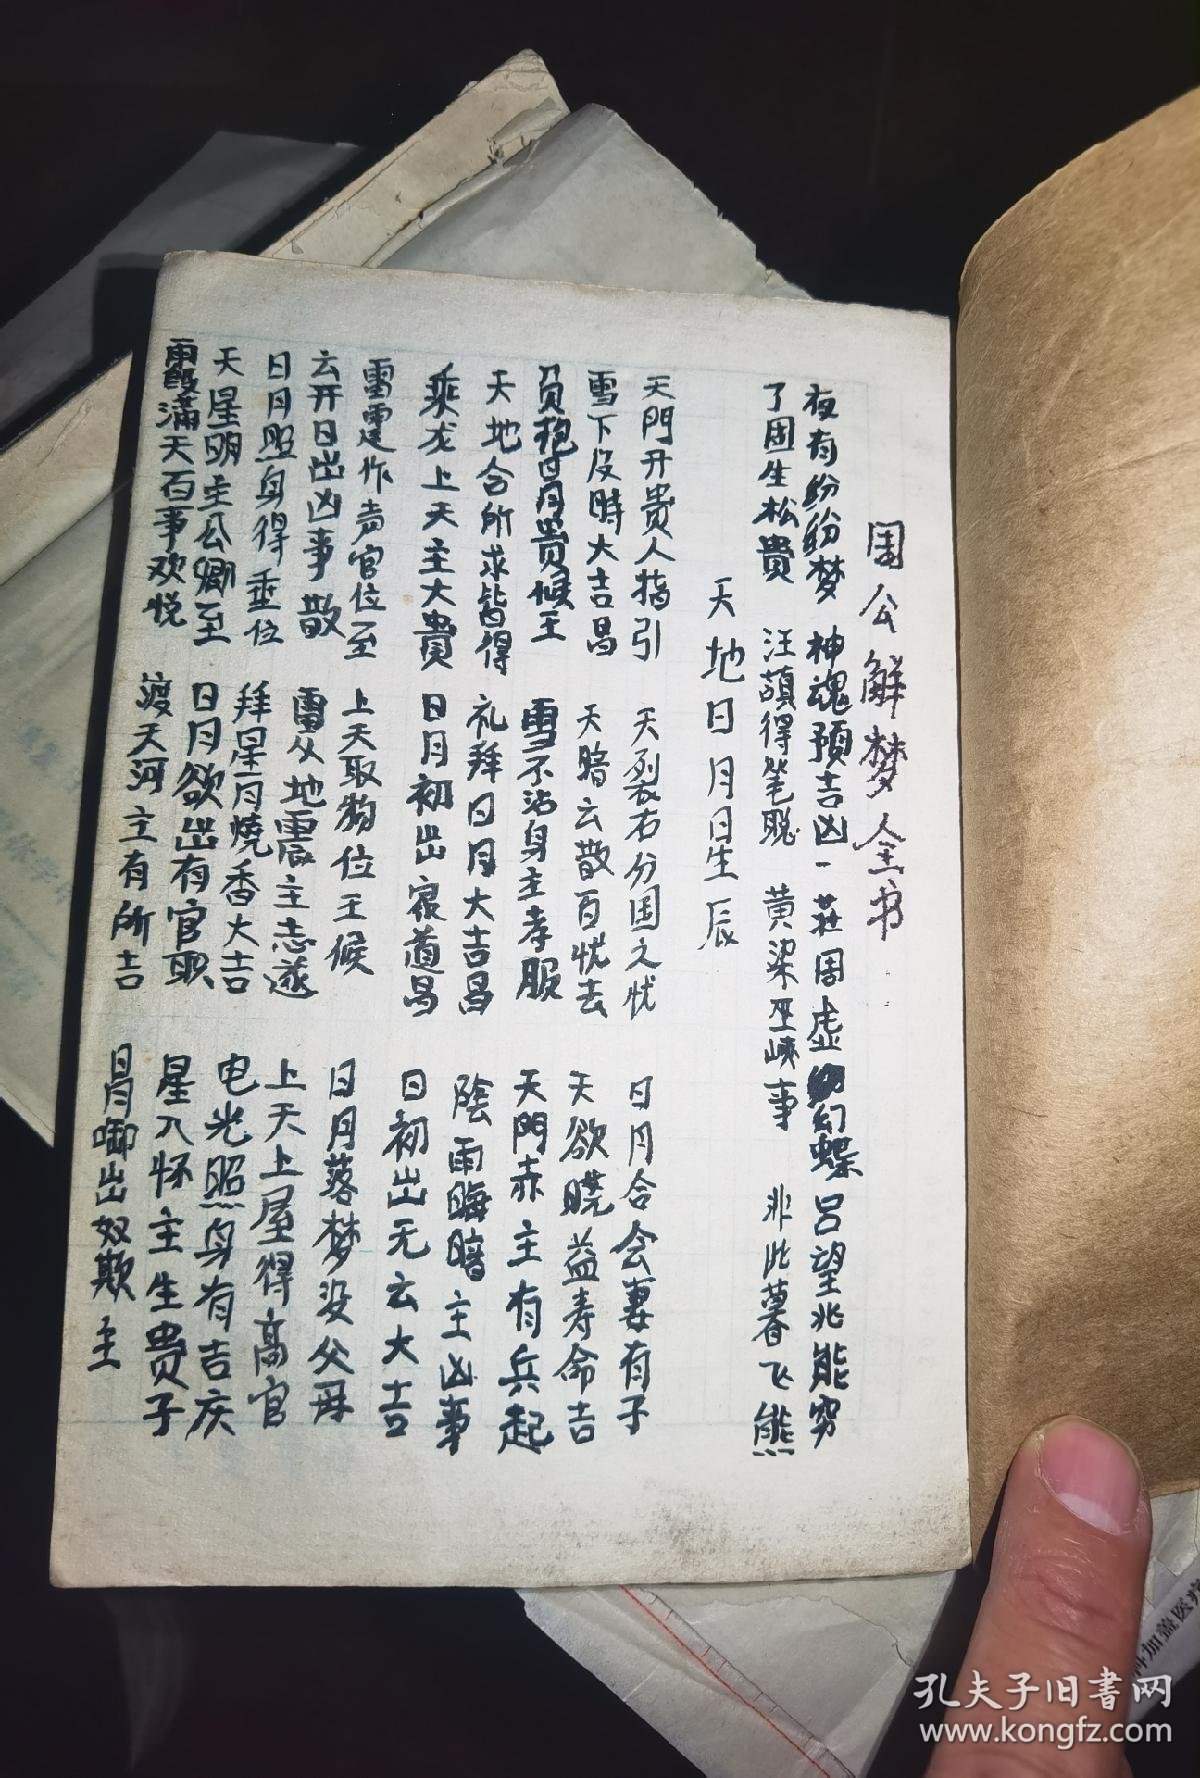 周公解梦全书
夜有纷纷梦 神魂预吉凶一 庄周虚幻蝶 吕望兆熊穷
了固生松貴 江頴得笔聪 黄梁巫峽事 非此暮飞熊
天地日月日生辰
天門开貴人指引 天裂右分国之忧 日月合会妻有子
雪下及時大吉昌 天暗云散百忧去 天欲曉益寿命吉
負抱日月貴候王 雪不沾身主孝服 天門赤主有兵起
天地合所求皆得 礼拜日月大吉昌 陰雨晦暗主凶事
乘龙上天主大貴 日月初出家道昌 日初出无云大吉
雷霆作声官位至 上天取物位王候 日月落梦没父母
云开日出凶事散 雷从地震主志遂 上天上屋得高官
日月照身得重位 拜星月燒香大吉 电光照身有吉庆
天星明主公卿至 日月欲出有官职 星入怀主生贵子
霞滿天百事欢悦 渡天河主有所吉 日月啣出奴欺主
孔夫子旧書网
www.kongfz.com